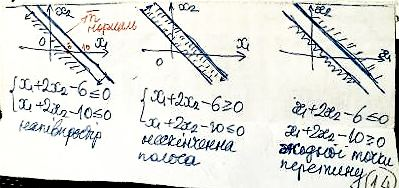 x₂
n⃗
нормаль
0
6
10
x₁
{x₁+2x₂-6≤0
{x₁+2x₂-10≤0
напівпростір
x₂
0
x₁
{x₁+2x₂-6≥0
{x₁+2x₂-10≤0
нескінченна
полоса
x₂
0
x₁
x₁+2x₂-6≤0
x₁+2x₂-10≥0
жодної точки
перетину